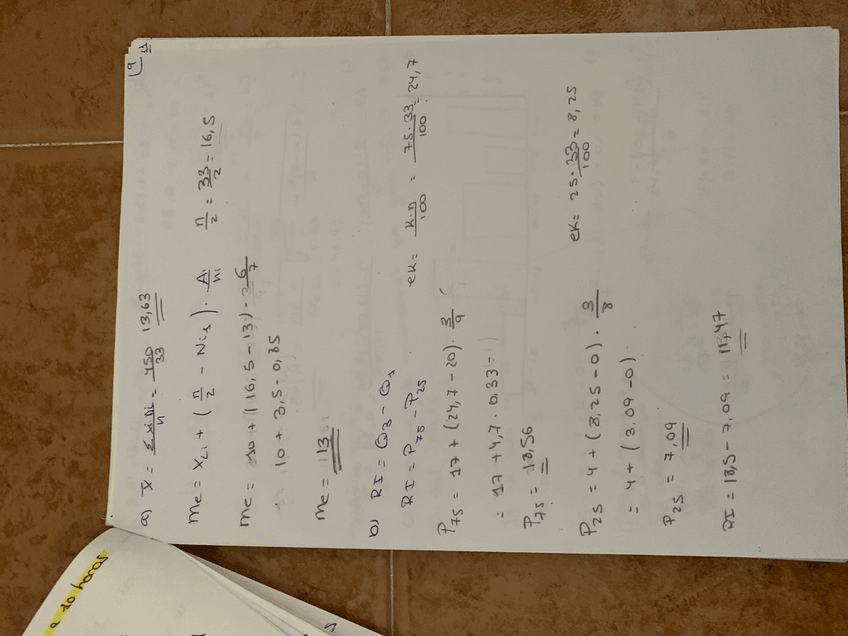 a) x̄ = Σxini/n = 450/33 13,63
Me = xLi + ( n/2 - Ni-1 ) · Ai/ni    n/2 = 33/2 = 16,5
Me = 10 + ( 16,5 - 13 ) · 6/7
10 + 3,5 · 0,85
Me = 13
b) RI = Q3 - Q1
RI = P75 - P25    ek = k·n/100 = 75·33/100 = 24,7
P75 = 17 + (24,7 - 20) · 3/9
= 17 + 4,7 · 0,33 =
P75 = 18,56
P25 = 4 + ( 8,25 - 0 ) · 3/8    ek = 25·33/100 = 8,25
= 4 + ( 3,09 - 0 )
P25 = 7,09
RI = 18,5 - 7,09 = 11,47
10 horas